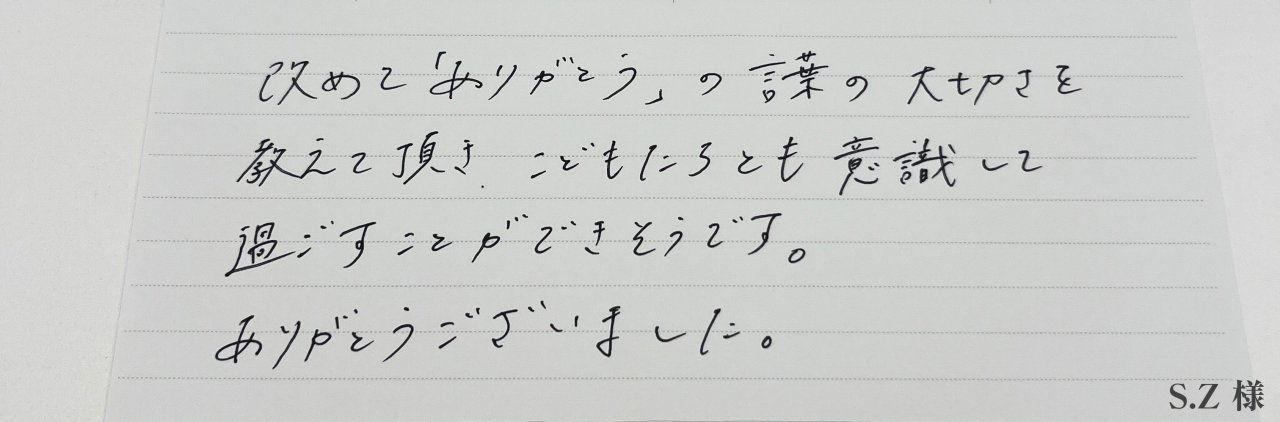 改めて「ありがとう」の言葉の大切さを
教えて頂き、こどもたちとも意識して
過ごすことができそうです。
ありがとうございました。
S.Z 様